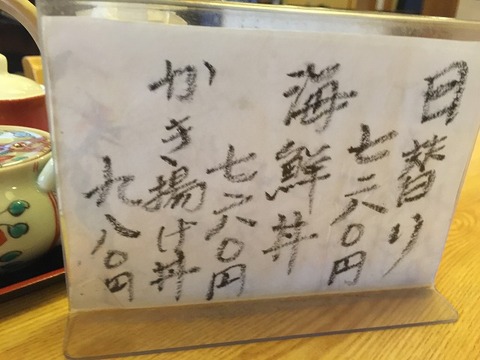 日替り
七二八〇円
海鮮丼
七二八〇円
かき揚げ丼
九八〇円